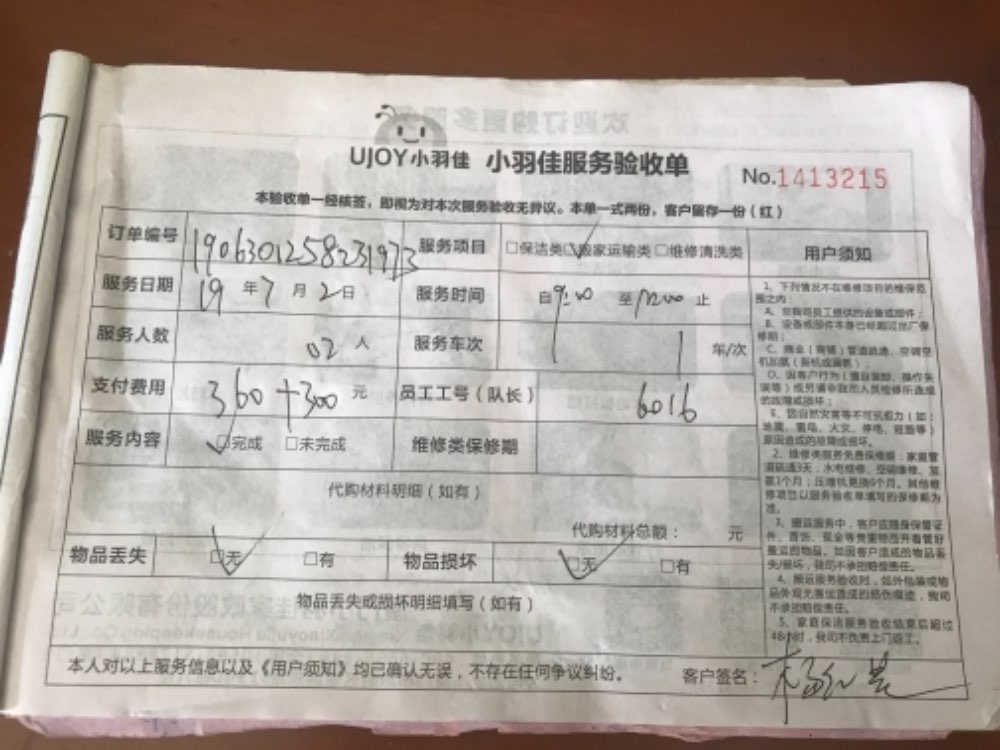 UJOY小羽佳 小羽佳服务验收单
No.1413215
本验收单一经核签，即视为对本次服务验收无异议。本单一式两份，客户留存一份（红）
订单编号 1906301258231973 服务项目 □保洁类□搬家运输类□维修清洗类 用户须知
服务日期 19年7月2日 服务时间 自9:00至12:00止
服务人数 02人 服务车次 1车/次
支付费用 360+300元 员工工号（队长） 6016
服务内容 □完成 □未完成 维修类保修期
代购材料明细（如有）
代购材料总额： 元
物品丢失 □无 □有 物品损坏 □无 □有
物品丢失或损坏明细填写（如有）
本人对以上服务信息以及《用户须知》均已确认无误，不存在任何争议纠纷。 客户签名：
1、下列情况不在维修项目的维保范
围之内：
A、非我司员工提供的设备或部件；
B、设备或部件本身已经超过出厂保
修期；
C、商业（商铺）管道疏通、空调空
机加氨（拆机或漏氨）；
D、因客户行为（擅自装卸、操作失
误等）或另请非我司人员维修所造成
的故障或损坏；
E、因自然灾害等不可抗力（如：
地震、雷电、火灾、停电、短路等）
原因造成的故障或损坏。
2、维修类服务免费保修期：家庭管
道疏通3天；水电维修、空调维修、加
氨1个月；压缩机更换6个月。其他维
修项目以服务验收单填写的保修期为
准。
3、搬运服务中，客户应随身保管证
件、首饰、现金等贵重物品并看管好
搬运的物品。如因客户造成的物品丢
失/损坏，我司不承担赔偿责任。
4、搬运服务验收时，如外包装或物
品外观无搬运造成的损伤痕迹，我司
不承担赔偿责任。
5、家庭保洁服务验收结束后超过
48小时，我司不负责上门返工。